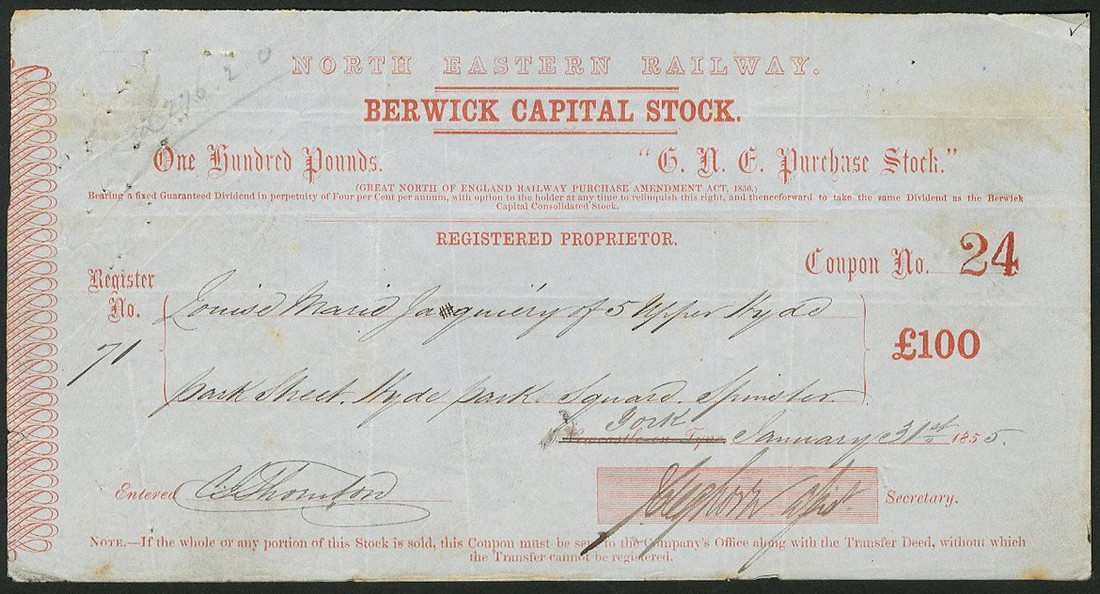 276. 2 0
NORTH EASTERN RAILWAY.
BERWICK CAPITAL STOCK.
One Hundred Pounds. "G. N. E. Purchase Stock."
(GREAT NORTH OF ENGLAND RAILWAY PURCHASE AMENDMENT ACT, 1850.)
Bearing a fixed Guaranteed Dividend in perpetuity of Four per Cent per annum, with option to the holder at any time to relinquish this right, and thenceforward to take the same Dividend as the Berwick
Capital Consolidated Stock.
REGISTERED PROPRIETOR.
Coupon No. 24
Register
No.
71
Louise Marie Jacquiery of 5 Upper Hyde
£100
park Street. Hyde park Square. Spinster
York January 31st 1855.
Entered Thornton
Secretary.
NOTE.—If the whole or any portion of this Stock is sold, this Coupon must be sent to the Company's Office along with the Transfer Deed, without which
the Transfer cannot be registered.